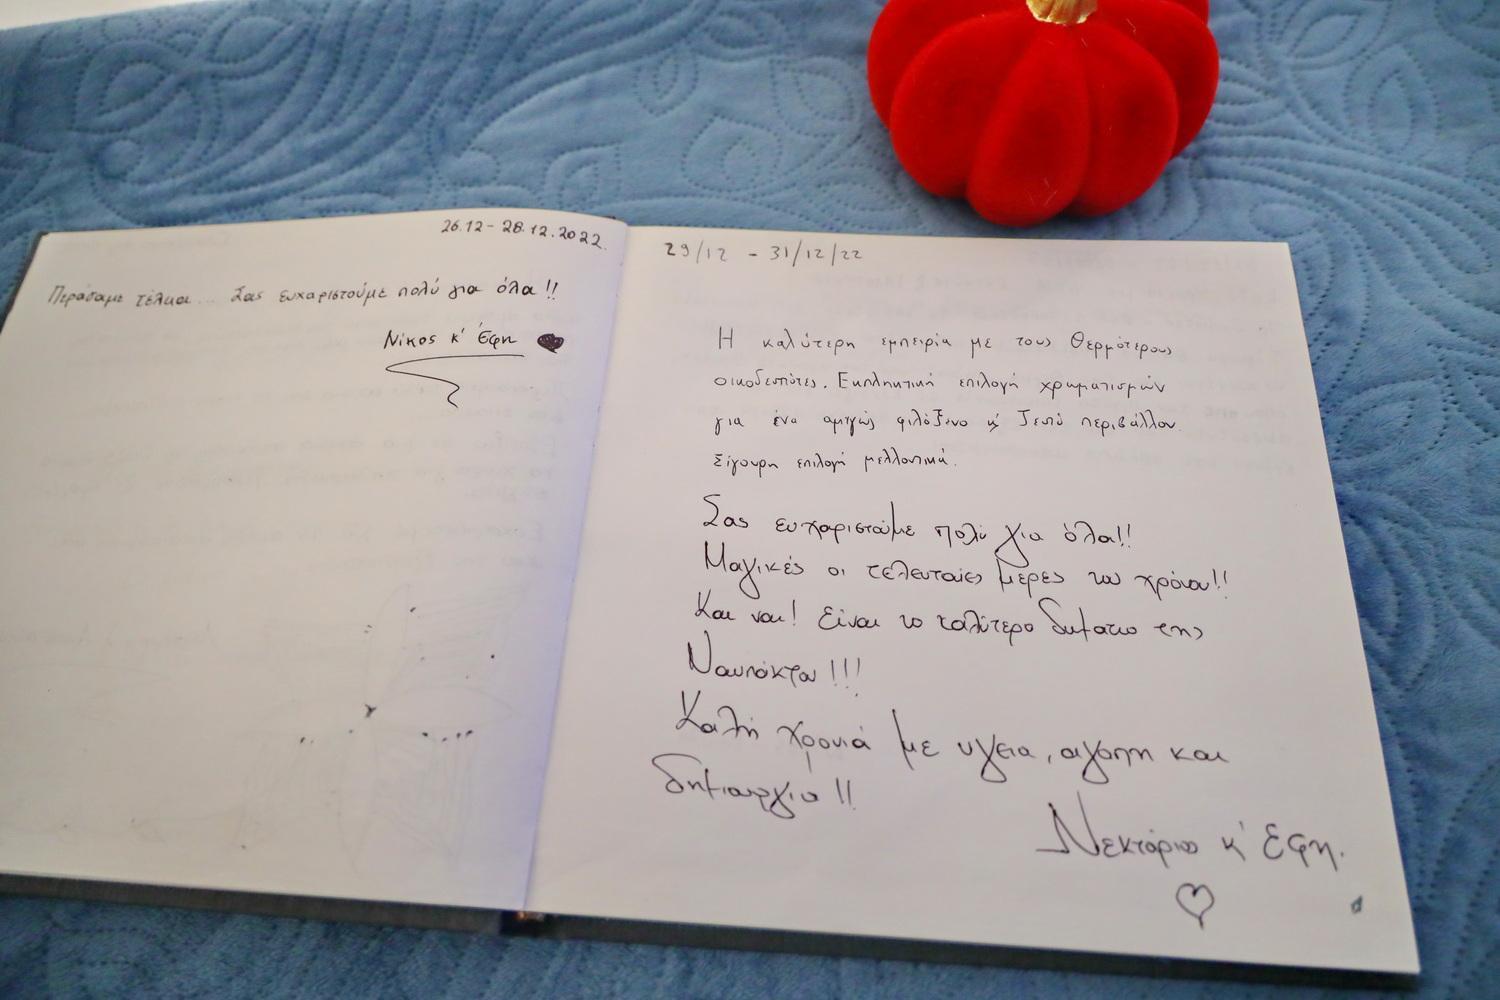 26.12 - 28.12.2022.
Περάσαμε τέλεια... Σας ευχαριστούμε πολύ για όλα!!
Νίκος κ' Έφη
29/12 - 31/12/22
Η καλύτερη εμπειρία με τους Θερμότερους
οικοδεσπότες. Εκπληκτική επιλογή χρωματισμών
για ένα αμιγώς φιλόξενο κ' ζεστό περιβάλλον.
Σίγουρη επιλογή μελλοντικά.
Σας ευχαριστούμε πολύ για όλα!!
Μαγικές οι τελευταίες μέρες του χρόνου!!
Και ναι! Είναι το καλύτερο δωμάτιο της
Ναυπάκτου!!!
Καλή χρονιά με υγεια, αγάπη και
δημιουργία!!
Νεκτάριος κ' Εφη.